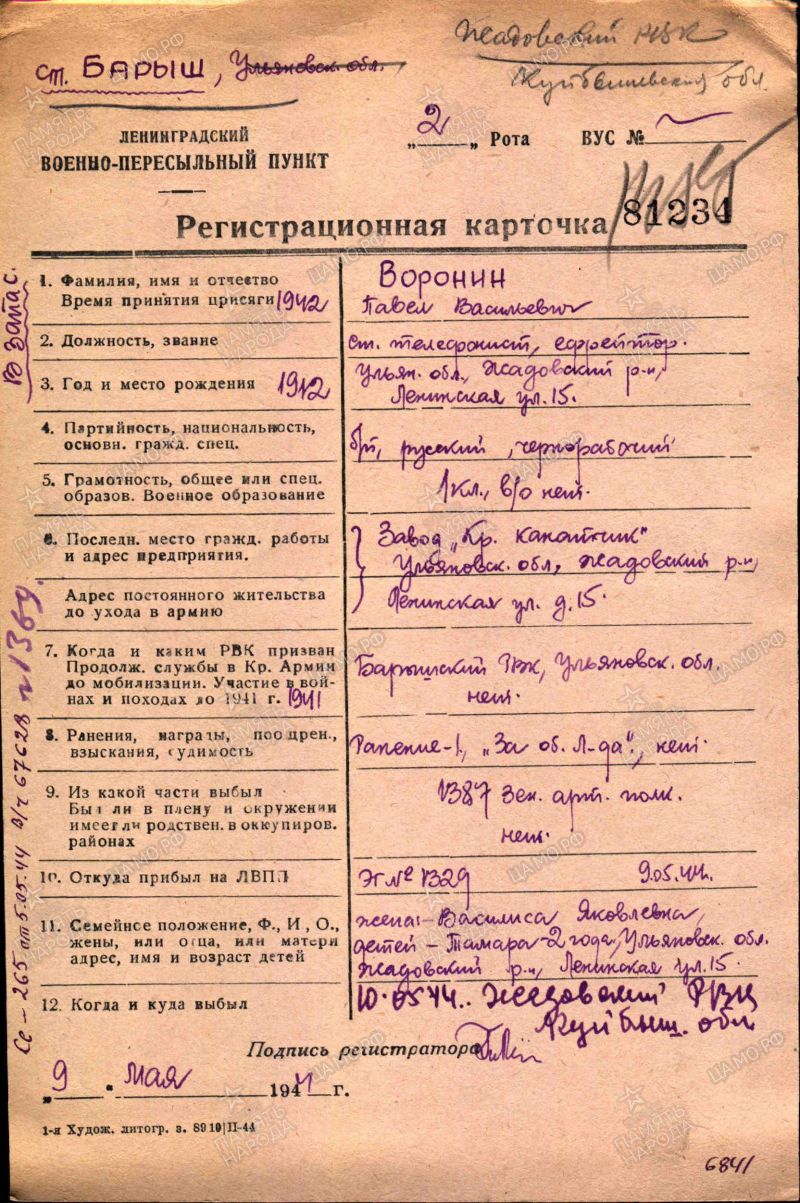 Жадовский РВК
Куйбышевская обл.
ст. БАРЫШ, Ульяновск. обл.
ЛЕНИНГРАДСКИЙ
ВОЕННО-ПЕРЕСЫЛЬНЫЙ ПУНКТ
„2„ Рота ВУС №
Регистрационная карточка 81234
В запас.
1. Фамилия, имя и отчество
Время принятия присяги 1942
Воронин
Павел Васильевич
2. Должность, звание
ст. телефонист, ефрейтор.
3. Год и место рождения 1912
Ульян. обл., Жадовский р-н,
Ленинская ул. 15.
4. Партийность, национальность,
основн. гражд. спец.
б/п, русский, чернорабочий
5. Грамотность, общее или спец.
образов. Военное образование
1 кл., в/о нет.
6. Последн. место гражд. работы
и адрес предприятия.
Завод „Кр. канатчик"
Ульяновск. обл, Жадовский р-н,
Адрес постоянного жительства
до ухода в армию
Ленинская ул. д. 15.
7. Когда и каким РВК призван
Продолж. службы в Кр. Армии
до мобилизации. Участие в вой-
нах и походах до 1941 г. 1941
Барышский РВК, Ульяновск. обл.
нет.
8. Ранения, награты, поощрен.,
взыскания, судимость
Ранение-1, „За об. Л-да"., нет.
9. Из какой части выбыл
Был ли в плену и окружении
имеет ли родствен. в оккупиров.
районах
1387 Зен. арт. полк.
нет.
10. Откуда прибыл на ЛВПП
ЭГ № 1329 9.05.44.
11. Семейное положение, Ф., И., О.,
жены, или отца, или матери
адрес, имя и возраст детей
жена-Василиса Яковлевна,
детей-Тамара 2 года, Ульяновск. обл.
Жадовский р-н, Ленинская ул. 15.
12. Когда и куда выбыл
10.05 44.. Жадовский РВК
Куйбыш. обл
Подпись регистратора
„9" мая 1944 г.
1-я Худож. литогр. з. 8910|II-44
6841
Се-265 от 5.05.44 в/ч 67628 № 1369.
ПАМЯТЬ НАРОДА
ЦАМО.РФ